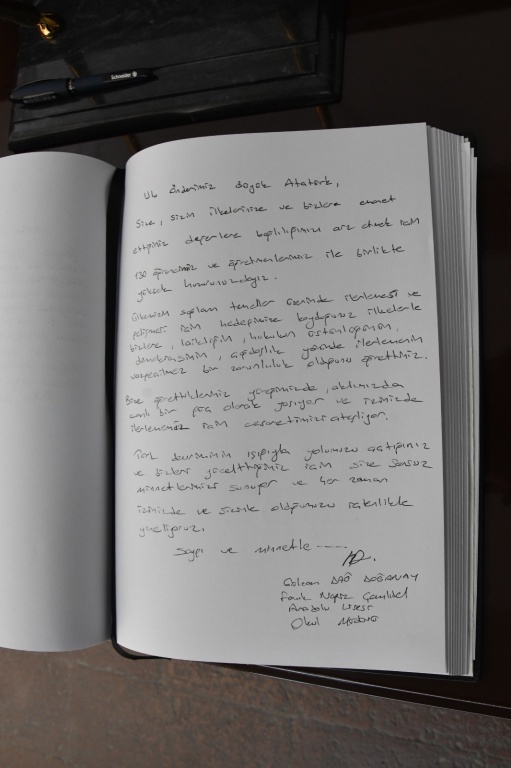 Schneider
Ulu Önderimiz Büyük Atatürk,
Size, sizin ilkelerinize ve bizlere emanet
ettiğiniz değerlere bağlılığımızı arz etmek için
130 öğrencimiz ve öğretmenlerimiz ile birlikte
yüksek huzurunuzdayız.
Ülkemizin sağlam temeller üzerinde ilerlemesi ve
gelişmesi için hedefimize koyduğunuz ilkelerle
bizlere, laikliğin, hukukun üstünlüğünün,
demokrasinin, çağdaşlık yönünde ilerlemenin
vazgeçilmez bir zorunluluk olduğunu öğrettiniz.
Bize öğrettikleriniz yüreğimizde, aklımızda
canlı bir olarak yaşıyor ve izinizde
ilerlememiz için cesaretimizi ateşliyor.
Türk devriminin ışığıyla yolumuzu açtığınız
ve bizleri yücelttiğiniz için size sonsuz
minnetlerimizi sunuyor ve her zaman
izinizde ve sizinle olduğumuzu içtenlikle
yineliyoruz.
Saygı ve minnetle
DAĞ DOĞANAY
Faruk Nafiz Çamlıbel
Anadolu Lisesi
Okul Müdürü